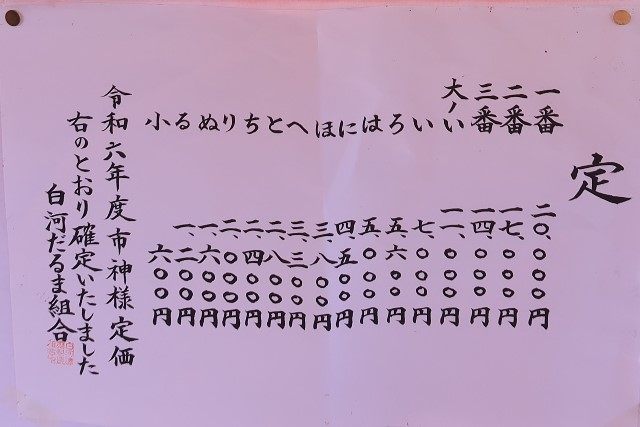 定
一番 二〇、〇〇〇円
二番 一七、〇〇〇円
三番 一四、〇〇〇円
大ノい 一一、〇〇〇円
い 七、〇〇〇円
ろ 五、六〇〇円
は 五、〇〇〇円
に 四、五〇〇円
ほ 三、八〇〇円
へ 三、三〇〇円
と 二、八〇〇円
ち 二、四〇〇円
り 二、〇〇〇円
ぬ 一、六〇〇円
る 一、二〇〇円
小 六〇〇円
令和六年度市神様定価
右のとおり確定いたしました
白河だるま組合